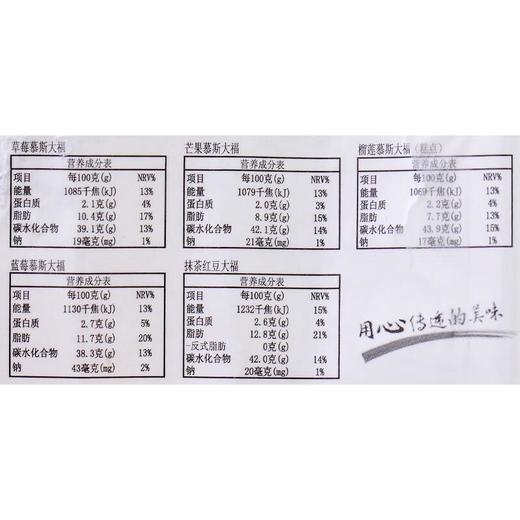 草莓慕斯大福
营养成分表
项目 每100克(g) NRV%
能量 1085千焦(kJ) 13%
蛋白质 2.1克(g) 4%
脂肪 10.4克(g) 17%
碳水化合物 39.1克(g) 13%
钠 19毫克(mg) 1%
芒果慕斯大福
营养成分表
项目 每100克(g) NRV%
能量 1079千焦(kJ) 13%
蛋白质 2.0克(g) 3%
脂肪 8.9克(g) 15%
碳水化合物 42.1克(g) 14%
钠 21毫克(mg) 1%
榴莲慕斯大福（糕点）
营养成分表
项目 每100克(g) NRV%
能量 1069千焦(kJ) 13%
蛋白质 2.2克(g) 4%
脂肪 7.7克(g) 13%
碳水化合物 43.9克(g) 15%
钠 17毫克(mg) 1%
蓝莓慕斯大福
营养成分表
项目 每100克(g) NRV%
能量 1130千焦(kJ) 13%
蛋白质 2.7克(g) 5%
脂肪 11.7克(g) 20%
碳水化合物 38.3克(g) 13%
钠 43毫克(mg) 2%
抹茶红豆大福
营养成分表
项目 每100克(g) NRV%
能量 1232千焦(kJ) 15%
蛋白质 2.6克(g) 4%
脂肪 12.8克(g) 21%
-反式脂肪 0克(g)
碳水化合物 42.0克(g) 14%
钠 20毫克(mg) 1%
用心传递的美味